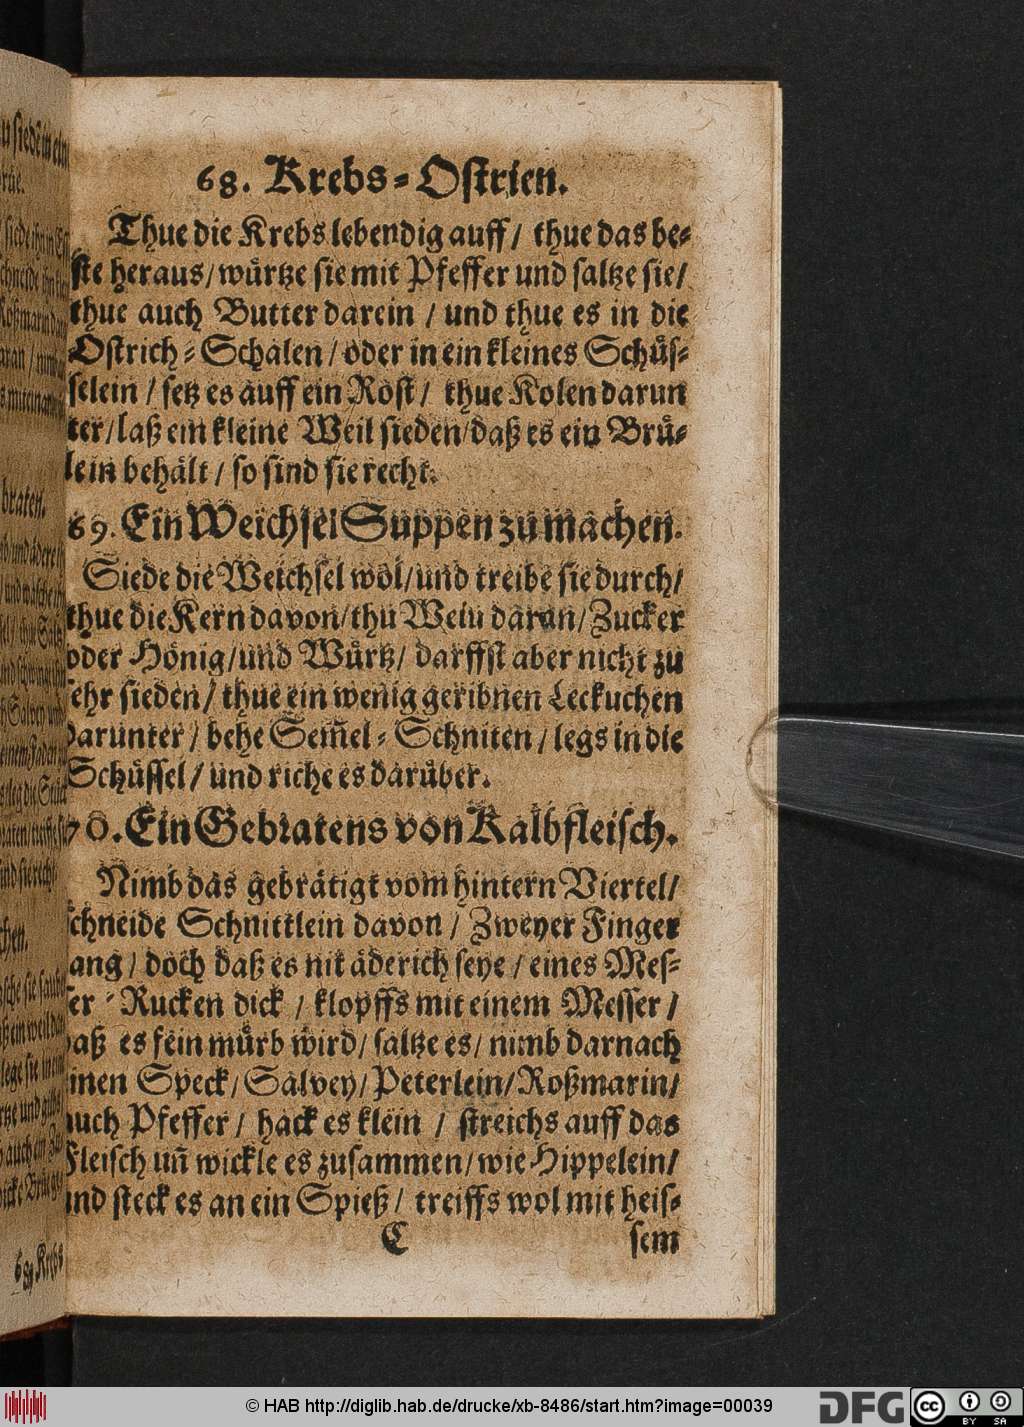 68. Krebs-Ostrien.
Thue die Krebs lebendig auff/ thue das be-
ste heraus/ wuͤrtze sie mit Pfeffer und saltze sie/
thue auch Butter darein / und thue es in die
Ostrich-Schalen/ oder in ein kleines Schuͤs-
selein / setz es auff ein Rost/ thue Kolen darun
ter/ laß ein kleine Weil sieden/ daß es ein Bruͤ-
lein behaͤlt / so sind sie recht.
69. Ein Weichsel Suppen zu machen.
Siede die Weichsel wol/ und treibe sie durch/
thue die Kern davon/ thu Wein daran/ Zucker
oder Hoͤnig/ und Wuͤrtz/ darffst aber nicht zu
sehr sieden/ thue ein wenig geribnen Leckuchen
darunter / behe Sem̃el-Schniten/ legs in die
Schuͤssel/ und riche es daruͤber.
70. Ein Gebratens von Kalbfleisch.
Nimb das gebraͤtigt vom hintern Viertel/
schneide Schnittlein davon / Zweyer Finger
lang/ doch daß es nit aͤderich seye / eines Mes-
ser-Rucken dick / klopffs mit einem Messer /
daß es fein muͤrb wird/ saltze es/ nimb darnach
einen Speck/ Salvey/ Peterlein/ Roßmarin/
auch Pfeffer/ hack es klein / streichs auff das
Fleisch uñ wickle es zusammen/ wie Hippelein/
und steck es an ein Spieß/ treiffs wol mit heis-
C sem
© HAB http://diglib.hab.de/drucke/xb-8486/start.htm?image=00039
DFG
cc BY SA